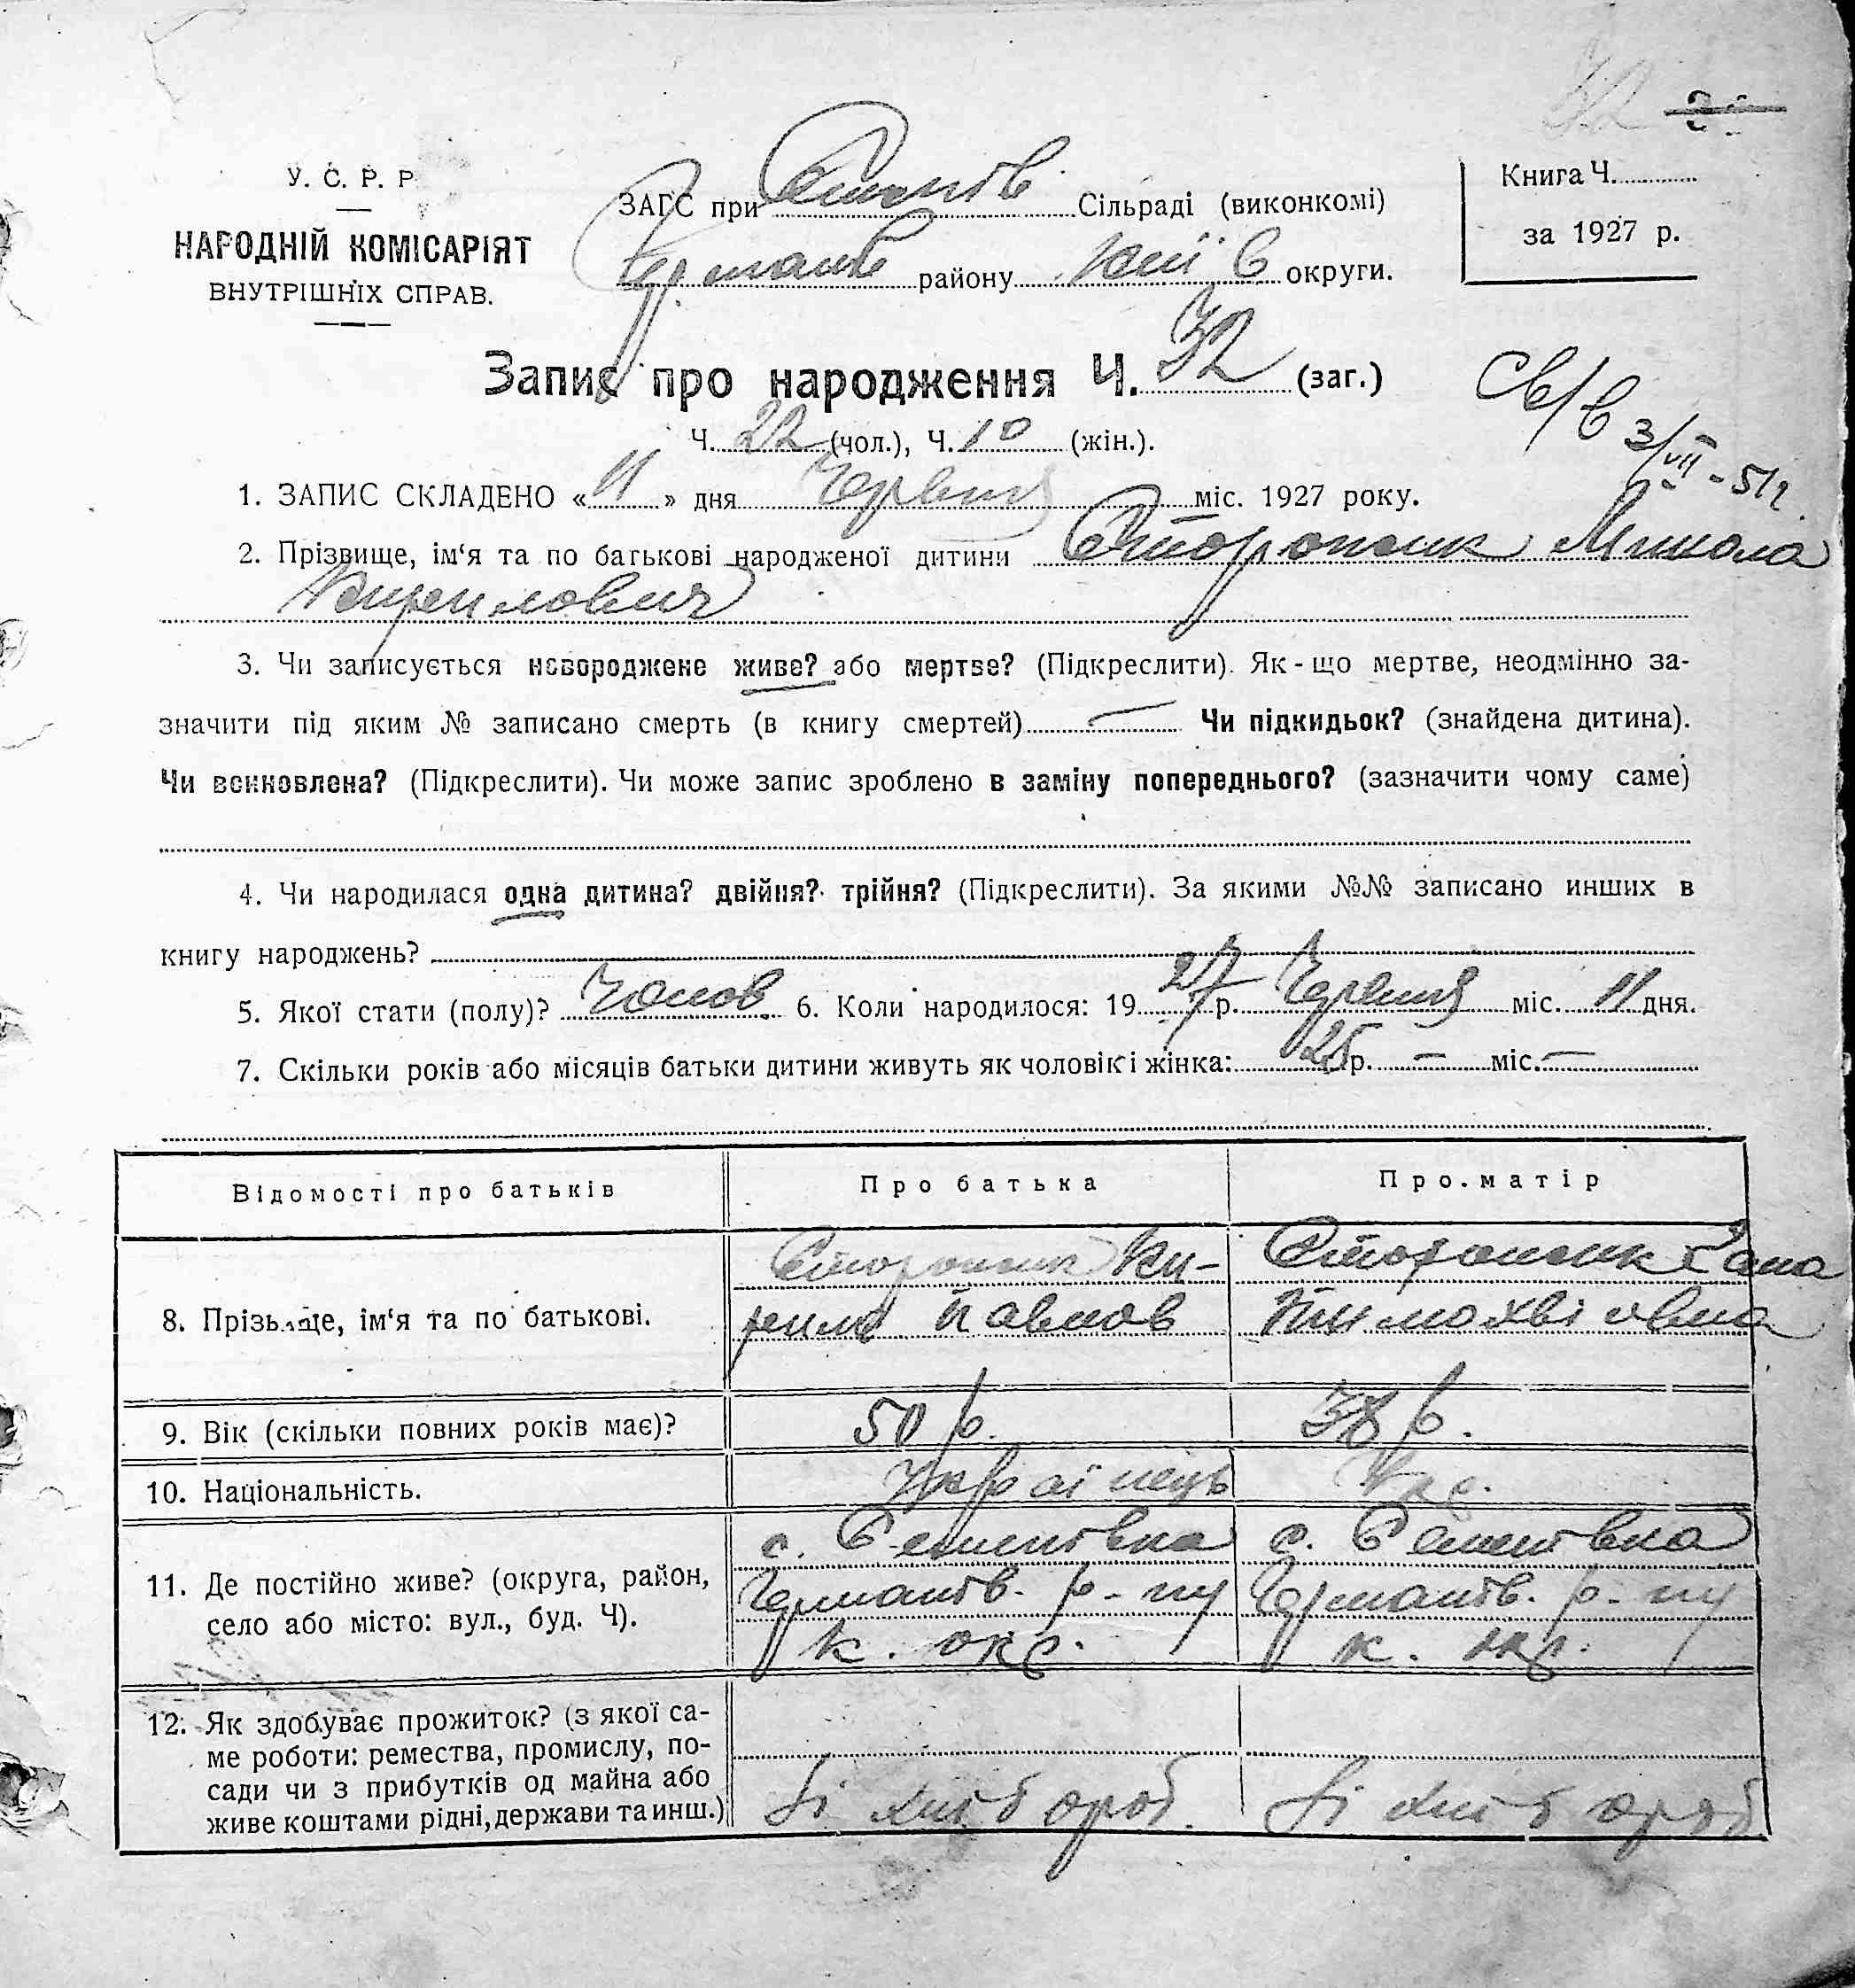 32
У. С. Р. Р.
НАРОДНІЙ КОМІСАРІЯТ
ВНУТРІШНІХ СПРАВ.
ЗАГС при Сільраді (виконкомі)
району Київ округи.
Книга Ч.
за 1927 р.
Запис про народження Ч. 32 (заг.)
Ч. 22 (чол.), Ч. 10 (жін.).
Св/в 3/VII - 51 г.
1. ЗАПИС СКЛАДЕНО « 11 » дня Червня міс. 1927 року.
2. Прізвище, ім‘я та по батькові народженої дитини Сторожик Микола
Кирилович
3. Чи записується новороджене живе? або мертве? (Підкреслити). Як - що мертве, неодмінно за-
значити під яким № записано смерть (в книгу смертей) — Чи підкидьок? (знайдена дитина).
Чи всиновлена? (Підкреслити). Чи може запис зроблено в заміну попереднього? (зазначити чому саме)
4. Чи народилася одна дитина? двійня? трійня? (Підкреслити). За якими №№ записано инших в
книгу народжень?
5. Якої стати (полу)? Чолов. 6. Коли народилося: 19 27 р. Червня міс. 11 дня.
7. Скільки років або місяців батьки дитини живуть як чоловік і жінка: 25 р. — міс. —
Відомості про батьків
Про батька
Про матір
8. Прізвище, ім‘я та по батькові.
Ки-
рило Павлов
Ганна
Тимохвіівна
9. Вік (скільки повних років має)?
50 р.
38 р.
10. Національність.
Українець
Укр.
11. Де постійно живе? (округа, район,
село або місто: вул., буд. Ч).
с.
р-ну
К. окр.
с.
р-ну
К. окр.
12. Як здобуває прожиток? (з якої са-
ме роботи: ремества, промислу, по-
сади чи з прибутків од майна або
живе коштами рідні, держави та инш.)
Зі хліб ороб.
Зі хліб ороб